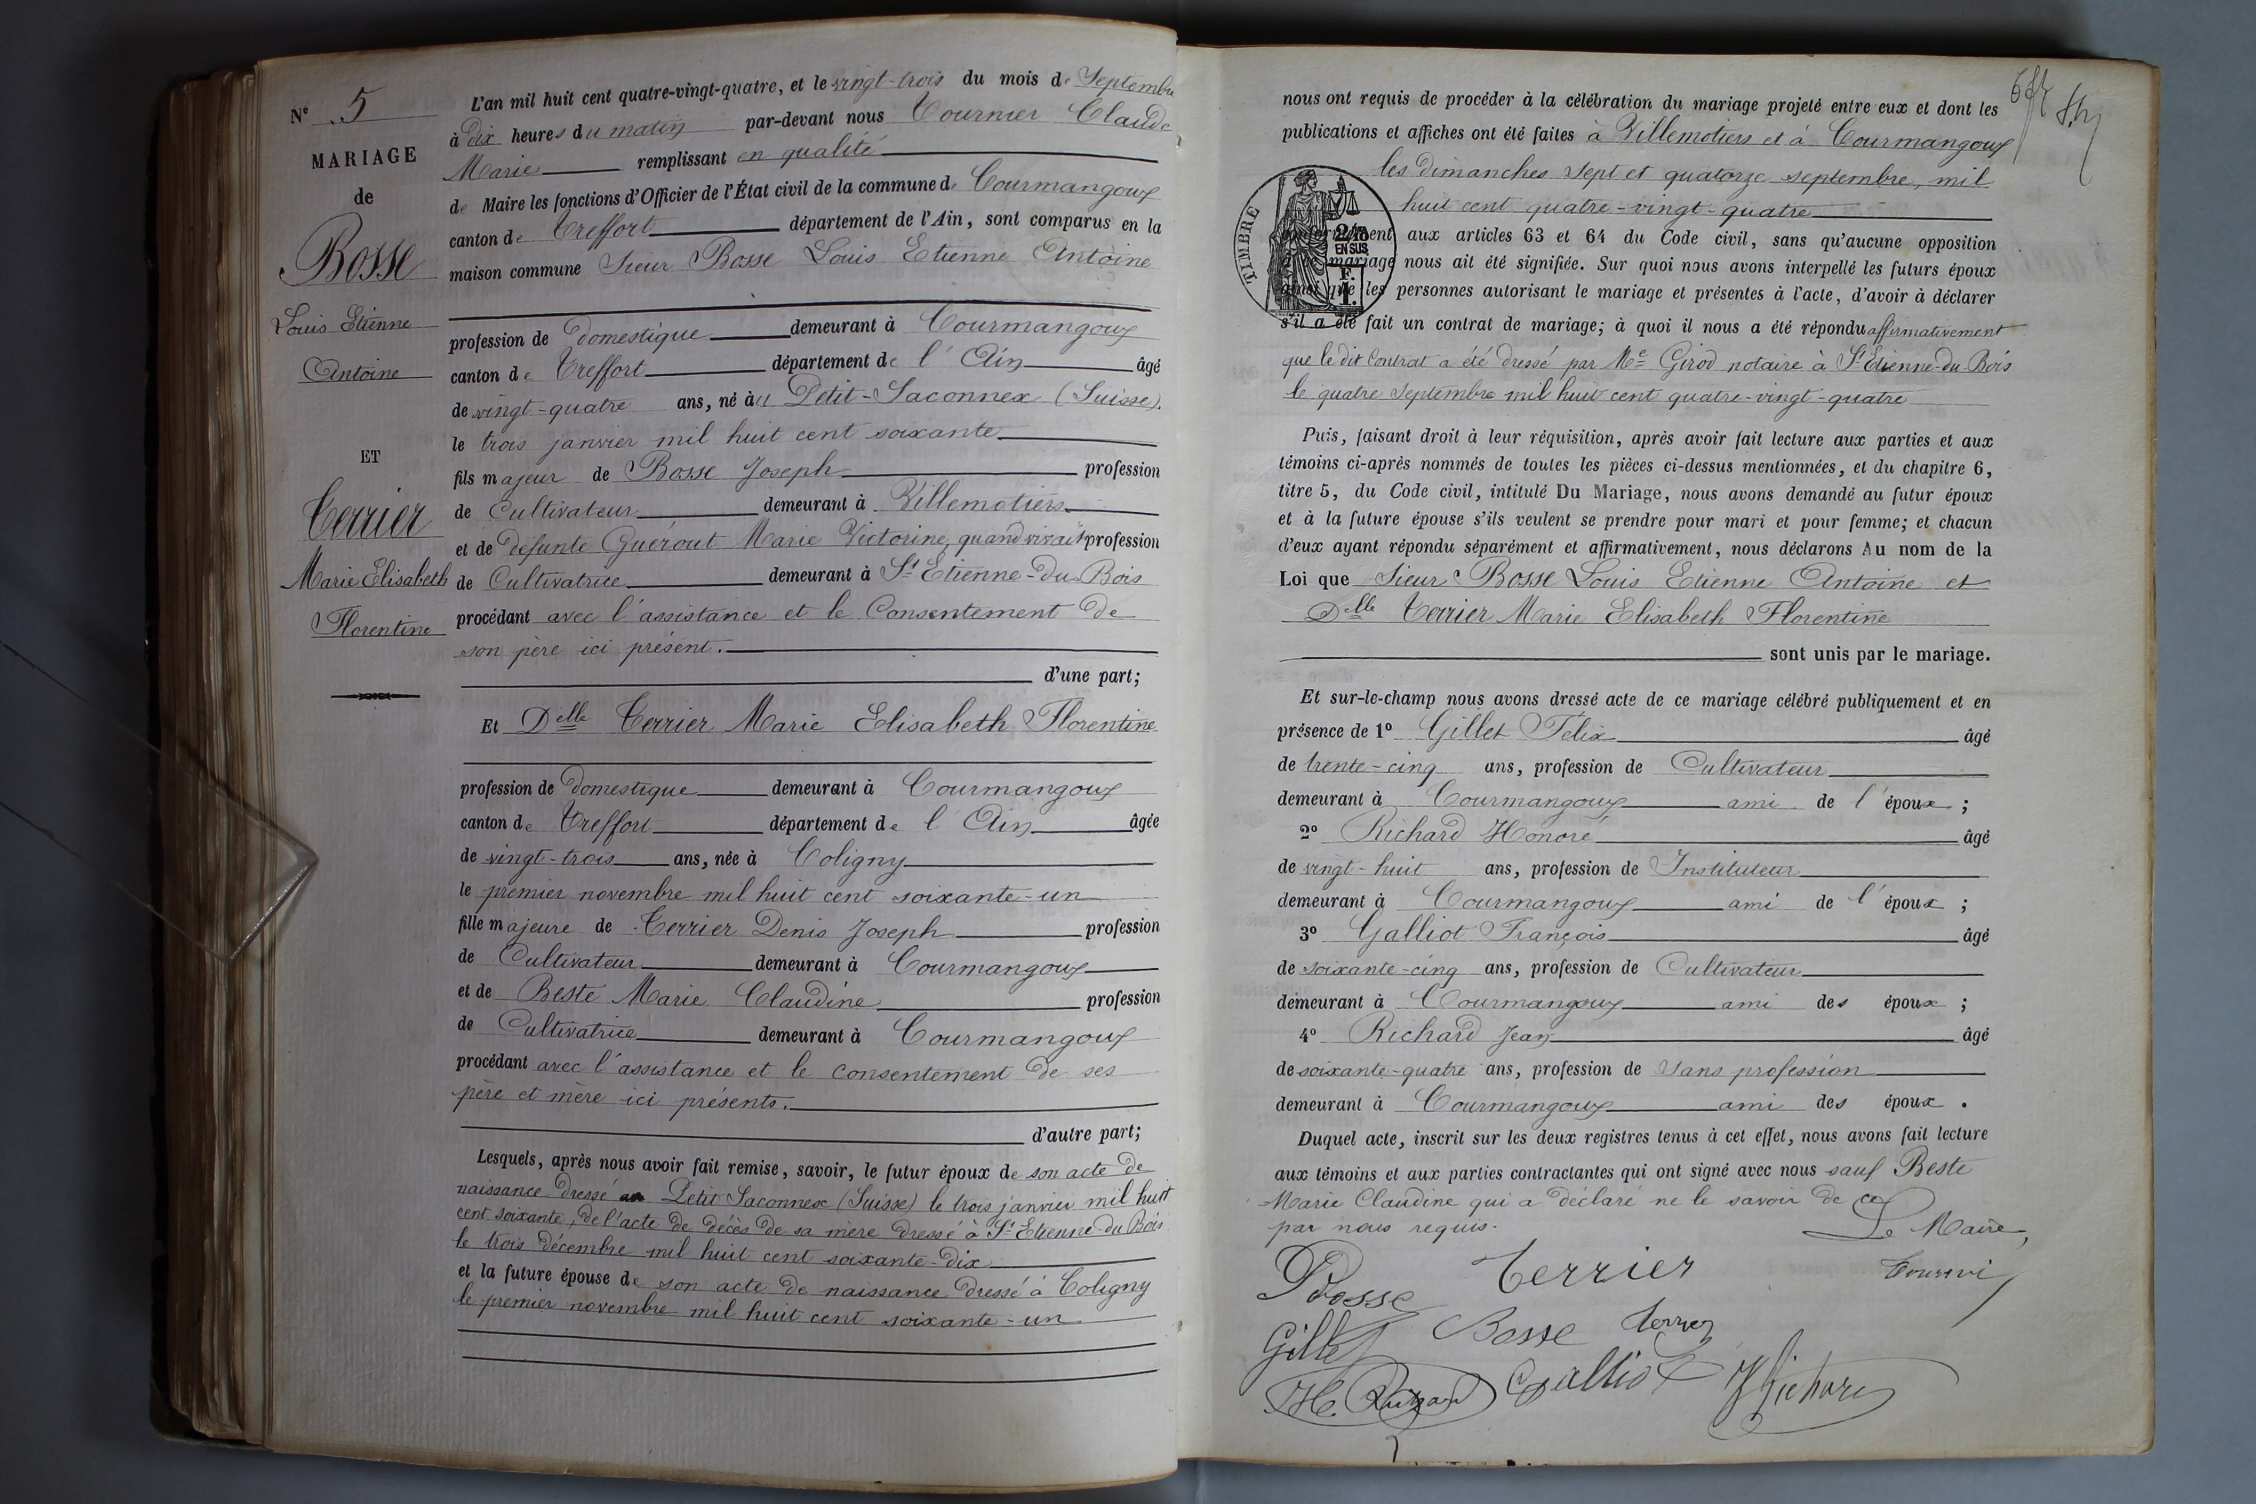 Nº 5
MARIAGE
de
Bosse
Louis Etienne
Antoine
ET
Terrier
Marie Elisabeth
Florentine
L'an mil huit cent quatre-vingt-quatre, et le vingt-trois du mois de Septembre
à dix heures du matin par-devant nous Tournier Claude
Marie remplissant en qualité
de Maire les fonctions d'Officier de l'État civil de la commune de Courmangoux
canton de Treffort département de l'Ain, sont comparus en la
maison commune Sieur Bosse Louis Etienne Antoine
profession de domestique demeurant à Courmangoux
canton de Treffort département de l'Ain âgé
de vingt-quatre ans, né au Petit-Saconnex (Suisse).
le trois janvier mil huit cent soixante
fils majeur de Bosse Joseph profession
de Cultivateur demeurant à Villemotiers
et de défunte Guérout Marie Victorine, quand vivait profession
de Cultivatrice demeurant à St Etienne-du-Bois
procédant avec l'assistance et le Consentement de
son père ici présent.
d'une part;
Et Delle Terrier Marie Elisabeth Florentine
profession de domestique demeurant à Courmangoux
canton de Treffort département de l'Ain âgée
de vingt-trois ans, née à Coligny
le premier novembre mil huit cent soixante-un
fille majeure de Terrier Denis Joseph profession
de Cultivateur demeurant à Courmangoux
et de Beste Marie Claudine profession
de Cultivatrice demeurant à Courmangoux
procédant avec l'assistance et le consentement de ses
père et mère ici présents.
d'autre part;
Lesquels, après nous avoir fait remise, savoir, le futur époux de son acte de
naissance dressé au Petit Saconnex (Suisse) le trois janvier mil huit
cent soixante, de l'acte de décès de sa mère dressé à St Etienne-du-Bois
le trois décembre mil huit cent soixante-dix
et la future épouse de son acte de naissance dressé à Coligny
le premier novembre mil huit cent soixante-un
nous ont requis de procéder à la célébration du mariage projeté entre eux et dont les
publications et affiches ont été faites à Villemotiers et à Courmangoux
les dimanches sept et quatorze septembre, mil
huit cent quatre-vingt-quatre
TIMBRE
2/10
EN SUS
F.
1.
conformément aux articles 63 et 64 du Code civil, sans qu'aucune opposition
à ce mariage nous ait été signifiée. Sur quoi nous avons interpellé les futurs époux
ainsi que les personnes autorisant le mariage et présentes à l'acte, d'avoir à déclarer
s'il a été fait un contrat de mariage; à quoi il nous a été répondu affirmativement
que le dit Contrat a été dressé par Me Girod notaire à St Etienne-du-Bois
le quatre Septembre mil huit cent quatre-vingt-quatre
Puis, faisant droit à leur réquisition, après avoir fait lecture aux parties et aux
témoins ci-après nommés de toutes les pièces ci-dessus mentionnées, et du chapitre 6,
titre 5, du Code civil, intitulé Du Mariage, nous avons demandé au futur époux
et à la future épouse s'ils veulent se prendre pour mari et pour femme; et chacun
d'eux ayant répondu séparément et affirmativement, nous déclarons Au nom de la
Loi que Sieur Bosse Louis Etienne Antoine et
Delle Terrier Marie Elisabeth Florentine
sont unis par le mariage.
Et sur-le-champ nous avons dressé acte de ce mariage célébré publiquement et en
présence de 1º Gillet Félix âgé
de trente-cinq ans, profession de Cultivateur
demeurant à Courmangoux ami de l'époux ;
2º Richard Honoré âgé
de vingt-huit ans, profession de Instituteur
demeurant à Courmangoux ami de l'époux ;
3º Galliot François âgé
de soixante-cinq ans, profession de Cultivateur
demeurant à Courmangoux ami des époux ;
4º Richard Jean âgé
de soixante-quatre ans, profession de Sans profession
demeurant à Courmangoux ami des époux .
Duquel acte, inscrit sur les deux registres tenus à cet effet, nous avons fait lecture
aux témoins et aux parties contractantes qui ont signé avec nous sauf Beste
Marie Claudine qui a déclaré ne le savoir de ce
par nous requis.
Le Maire,
Bosse Terrier
Gillet Bosse Terrier
H. Richard Galliot Richard